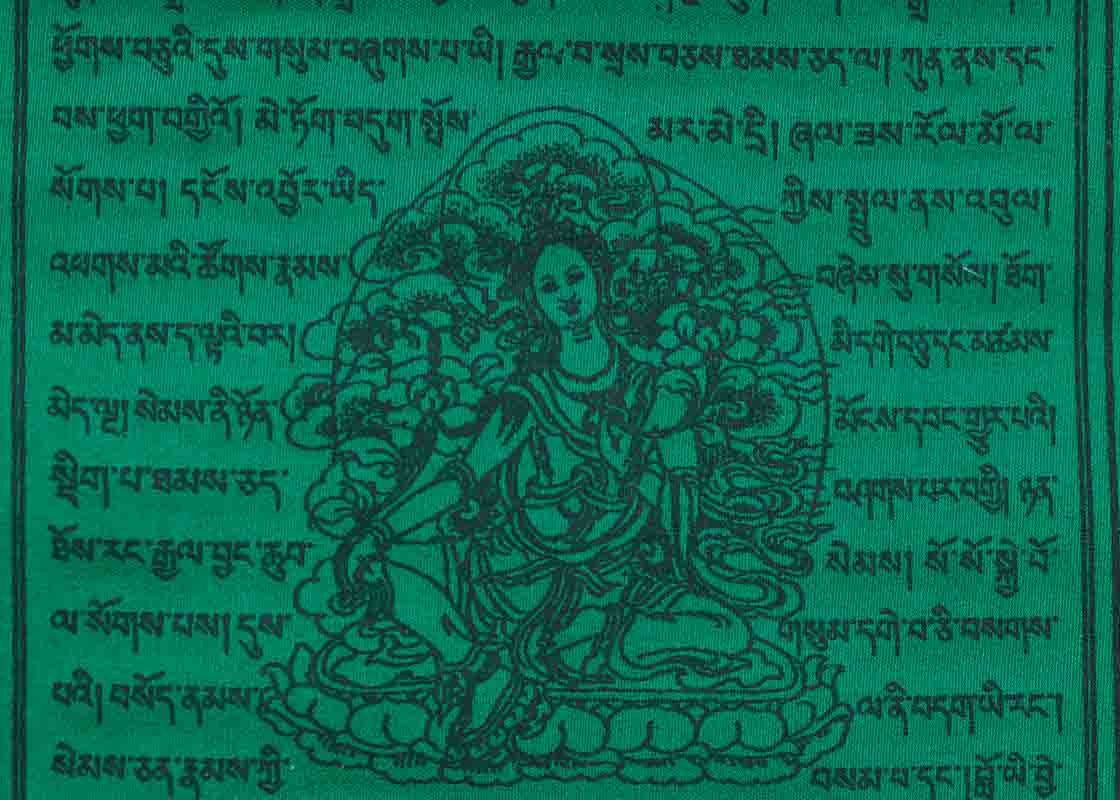 ཕྱོགས་བཅུའི་དུས་གསུམ་བཞུགས་པ་ཡི། རྒྱལ་བ་སྲས་བཅས་ཐམས་ཅད་ལ། ཀུན་ནས་དང་
བས་ཕྱག་བགྱིའོ། མེ་ཏོག་བདུག་སྤོས་ མར་མེ་དྲི། ཞལ་ཟས་རོལ་མོ་ལ་
སོགས་པ། དངོས་འབྱོར་ཡིད་ ཀྱིས་སྤྲུལ་ནས་འབུལ།
འཕགས་མའི་ཚོགས་རྣམས་ བཞེས་སུ་གསོལ། ཐོག་
མ་མེད་ནས་ད་ལྟའི་བར། མི་དགེ་བཅུ་དང་མཚམས་
མེད་ལྔ། སེམས་ནི་ཉོན་ མོངས་དབང་གྱུར་པའི།
སྡིག་པ་ཐམས་ཅད་ བཤགས་པར་བགྱི། ཉན་
ཐོས་རང་རྒྱལ་བྱང་ཆུབ་ སེམས། སོ་སོ་སྐྱེ་བོ་
ལ་སོགས་པས། དུས་ གསུམ་དགེ་བ་ཅི་བསགས་
པའི། བསོད་ནམས་ ལ་ནི་བདག་ཡི་རང་།
སེམས་ཅན་རྣམས་ཀྱི་ བསམ་པ་དང་། བློ་ཡི་བྱེ་